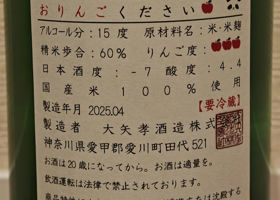 おりんごください
アルコール分:15度 原材料名:米・米麹
精米歩合:60% りんご度:
日本酒度:-7 酸度:4.4
国産米100%使用
製造年月 2025.04 【要冷蔵】
製造者 大矢孝酒造株式
神奈川県愛甲郡愛川町田代521
お酒は20歳になってから。お酒は適量を。
飲酒運転は法律で禁止されております。